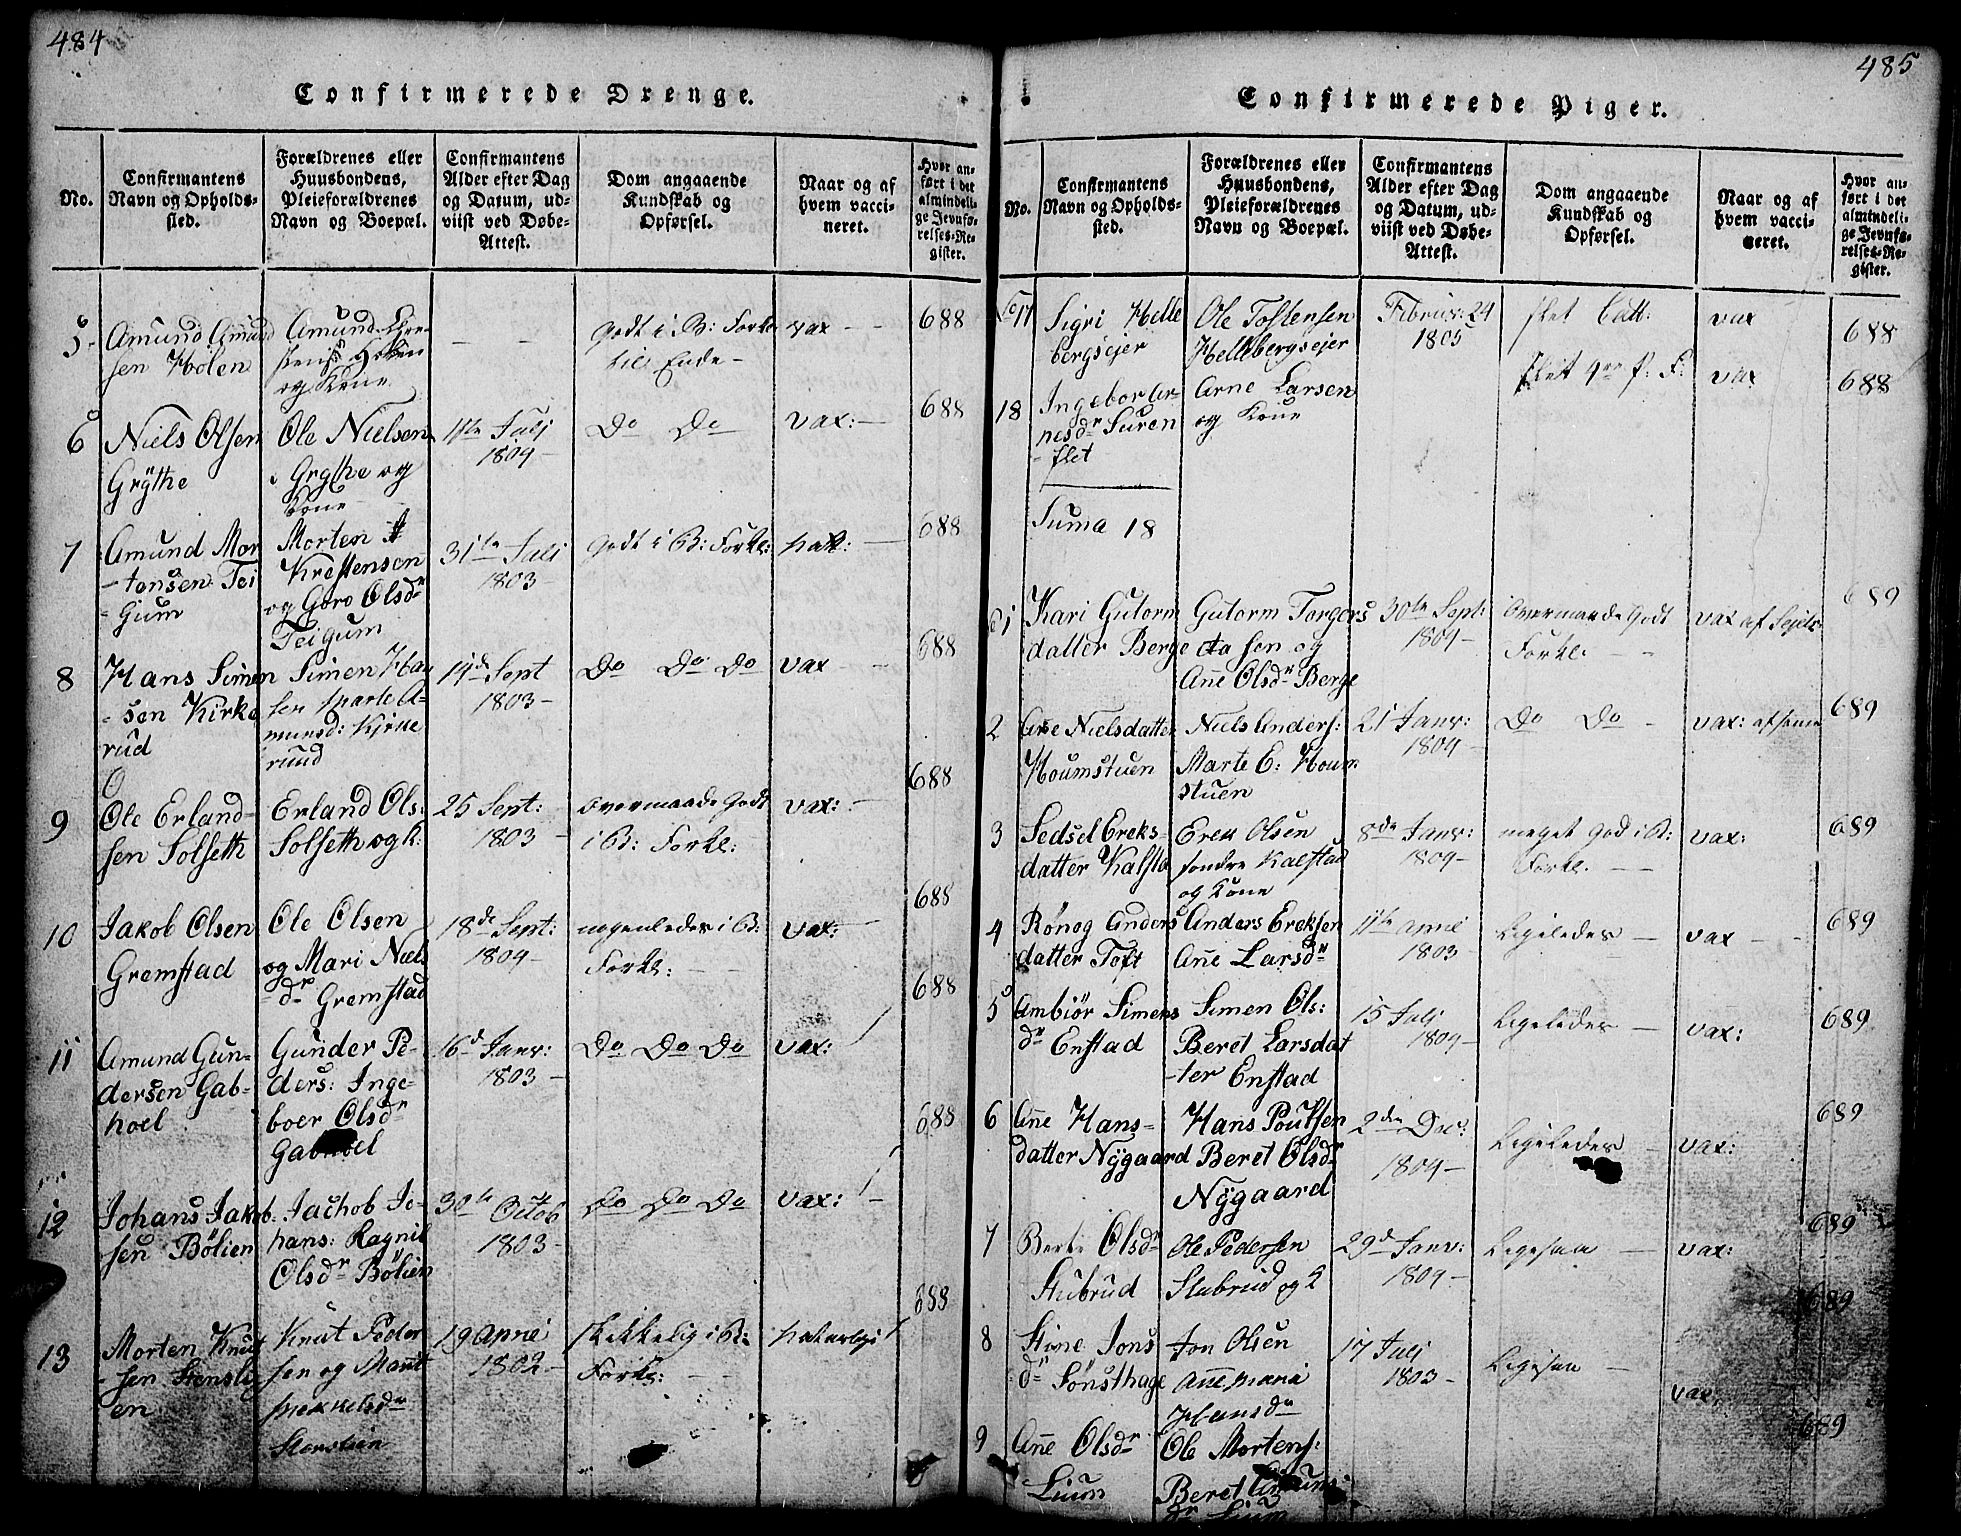 484
Confirmerede Drenge.
No.
Confirmantens
Navn og Opholds-
sted.
Forældrenes eller
Huusbondens,
Pleieforældrenes
Navn og Boepæl.
Confirmantens
Alder efter Dag
og Datum, ud-
viist ved Døbe-
Attest.
Dom angaaende
Kundskab og
Opførsel.
Naar og af
hvem vacci-
neret.
Hvor an-
ført i det
almindeli-
ge Jevnfø-
relses-Re-
gister.
5
Amund Amund
sen Holen
Amund
og Kone
Godt i B: Forkl
til Ende -
vax
688
6
Niels Olsen
Grÿthe
Ole Nielsen
Grÿthe og
Kone
11te Juli
1809
Do Do
vax:
688
7
Amund Mor
- tensen Tei
- gum
Morten
Krestensen
og Goro Olsdr
Teigum
31te Juli
1803
Godt i B: Forkl:
nat:
688
8
Hans Simen
- sen Kirke
rud
Simen Han
sen Marte A-
munsd: Kirke
ruud
19de Sept
1803
Do Do Do
vax
688
9
Ole Erland-
sen Solseth
Erland Ols:
Solseth og K:
25 Sept:
1803
overmaade Godt
i B: Forkl:
vax:
688
10
Jakob Olsen
Gremstad
Ole Olsen
og Mari Niels
dr Gremstad
18de Sept:
1809
nogenledes i B:
Forkl:
vax:
688
11
Amund Gun-
dersen Gab-
hoel
Gunder Pe-
ders: Inge-
boer Olsdr
Gabhoel
16d Janv:
1803
Do Do Do
vax:
688
12
Johans Jakob
sen Bölien
Jachob Jo-
hans: Ragnil
Olsdr Bölien
30te Octob
1803
Do Do Do
vax:
688
13
Morten Knut
- sen Stensli
en
Knut Peder
sen og Marit
Mekkelsdr
Stenslien
19
1802
skikkelig i B:
Forkl:
naturlig
688
485
Confirmerede Piger.
No.
Confirmantens
Navn og Opholds-
sted.
Forældrenes eller
Huusbondens,
Pleieforældrenes
Navn og Boepæl.
Confirmantens
Alder efter Dag
og Datum, ud-
viist ved Døbe-
Attest.
Dom angaaende
Kundskab og
Opførsel.
Naar og af
hvem vacci-
neret.
Hvor an-
ført i det
almindeli-
ge Jevnfø-
relses-Re-
gister.
17
Sigri Helle
bergsejer
Ole Tostensen
Hellebergsejer
Februar: 24
1805
slet Catt:
vax
688
18
Ingebor Ar-
nesdr Suren
- flet
Arne Larsen
og Kone
slet
vax
688
Suma 18
1
Kari Gutorm
datter Berge
Gutorm Torgers
sen og
Ane Olsdr Berge
30te Sept:
1809
overmaade Godt
Forkl.
vax af Sejels
689
2
Ane Nielsdatter
Houmstuen
Niels Anders:
Marte E: Houm
stuen
21 Janv:
1809
Do Do
vax: af samme
689
3
Sedsel Ereks-
datter Kalsta
Erek Olsen
søndre Kalstad
og Kone
8de Janv:
1809
meget God i B:
Forkl.
vax:
689
4
Rönog Anders
datter Toft
Anders Ereksen
Ane Larsdr
11te
1803
Ligeledes
vax
689
5
Ambiör Simens
dr Enstad
Simen Ols:
Beret Larsdat
- ter Enstad
15 Juli
1809
Ligeledes
vax:
689
6
Ane Hans-
datter Nÿgaard
Hans Poulsen
Beret Olsdr
Nÿgaard
2den Dec:
1809
Ligeledes
vax:
689
7
Berte Olsdr
Stubrud
Ole Pedersen
Stubrud og K
29d Janv:
1809
Ligesaa
vax:
689
8
Stine Jons
dr Sönsthage
Jon Olsen
Ane Maria
Hansdr
17 Juli
1803
Ligesaa
vax.
689
9
Ane Olsdr
Lium
Ole Mortens:
Beret Amuns
dr Lium
689